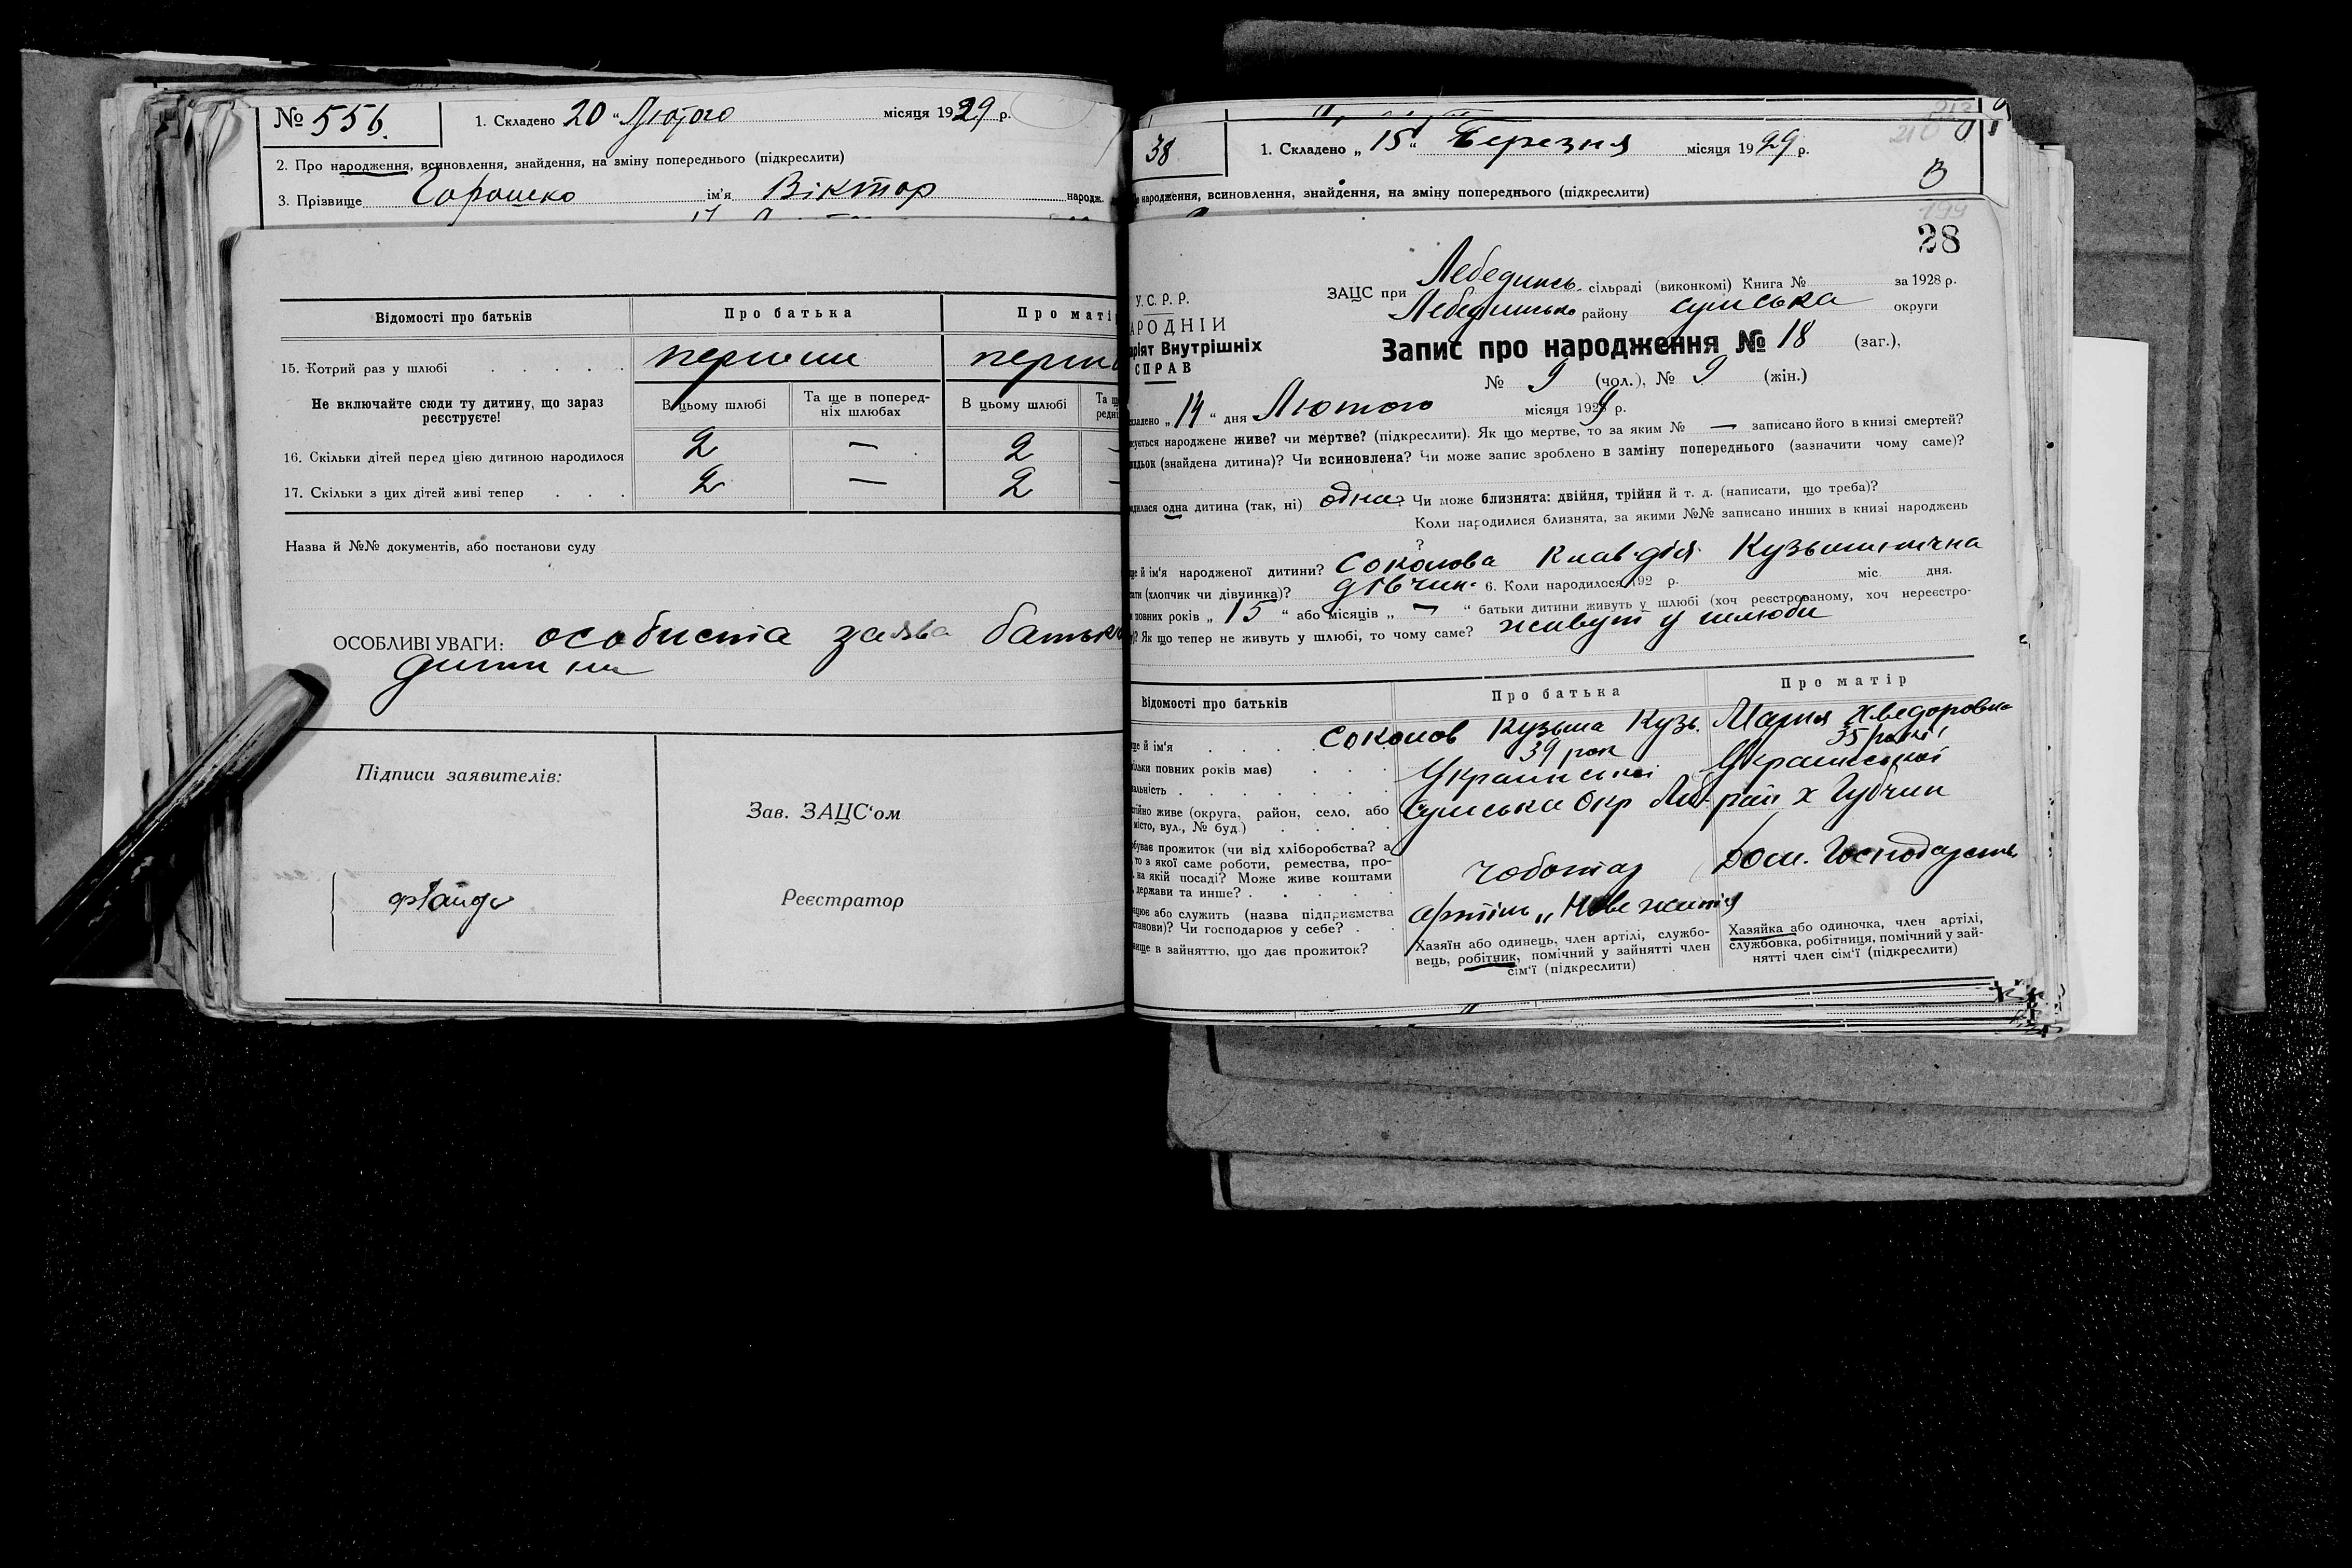 № 556.
1. Складено 20 „ Лютого місяця 1929 р.
2. Про народження, всиновлення, знайдення, на зміну попереднього (підкреслити)
3. Прізвище Горошко ім'я Віктор народж.
Відомості про батьків
Про батька
Про маті
15. Котрий раз у шлюбі
перший
перш
Не включайте сюди ту дитину, що зараз реєструєте!
В цьому шлюбі
Та ще в поперед-
ніх шлюбах
В цьому шлюбі
16. Скільки дітей перед цією дитиною народилося 2 — 2
17. Скільки з цих дітей живі тепер 2 — 2
Назва й №№ документів, або постанови суду
ОСОБЛИВІ УВАГИ: особиста заява батьк
дитини
Підписи заявителів:
Зав. ЗАЦС'ом
Реєстратор
38
1. Складено „ 15 “ Березня місяця 1929 р.
народження, всиновлення, знайдення, на зміну попереднього (підкреслити)
28
У.С.Р.Р.
АРОДНІЙ
ріят Внутрішніх
СПРАВ
ЗАЦС при Лебединсь. сільраді (виконкомі) Книга № за 1928 р.
Лебединсько району Сумська округи
Запис про народження № 18 (заг.),
№ 9 (чол.), № 9 (жін.)
кладено „ 14 “ дня Лютого місяця 1929 р.
сується народжене живе? чи мертве? (підкреслити). Як що мертве, то за яким № — записано його в книзі смертей?
идьок (знайдена дитина)? Чи всиновлена? Чи може запис зроблено в заміну попереднього (зазначити чому саме)?
одилася одна дитина (так, ні) одна? Чи може близнята: двійня, трійня й т. д. (написати, що треба)?
Коли народилися близнята, за якими №№ записано инших в книзі народжень
?
ще й ім'я народженої дитини? Соколова Клавдія Кузьминична
стати (хлопчик чи дівчинка)? дівчин. 6. Коли народилося 192 р. міс. дня.
и повних років „ 15 “ або місяців „ — “ батьки дитини живуть у шлюбі (хоч реєстрованому, хоч нереєстро-
у)? Як що тепер не живуть у шлюбі, то чому саме? живут у шлюби
Відомості про батьків
Про батька
Про матір
ще й ім'я Соколов Кузьма Кузь. Мария Хведоровна
ільки повних років має) 39 рок 35 років
альність Украинської Украинської
стійно живе (округа, район, село, або
місто, вул., № буд.)
Сумська Окр Леб. рай х Губчин
обуває прожиток (чи від хліборобства? а
то з якої саме роботи, ремества, про-
на якій посаді? Може живе коштами
держави та инше?
Чоботар
Дом. Господарств
ацює або служить (назва підприємства
станови)? Чи господарює у себе?
артіль „Нове життя
ище в зайняттю, що дає прожиток?
Хазяїн або одинець, член артілі, службо-
вець, робітник, помічний у зайнятті член
сім'ї (підкреслити)
Хазяйка або одиночка, член артілі,
службовка, робітниця, помічний у зай-
нятті член сім'ї (підкреслити)